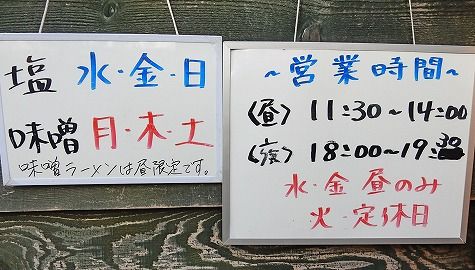 塩 水・金・日
味噌 月・木・土
味噌ラーメンは昼限定です。
～営業時間～
〈昼〉 11:30～14:00
〈夜〉 18:00～19:30
水・金 昼のみ
火・定休日